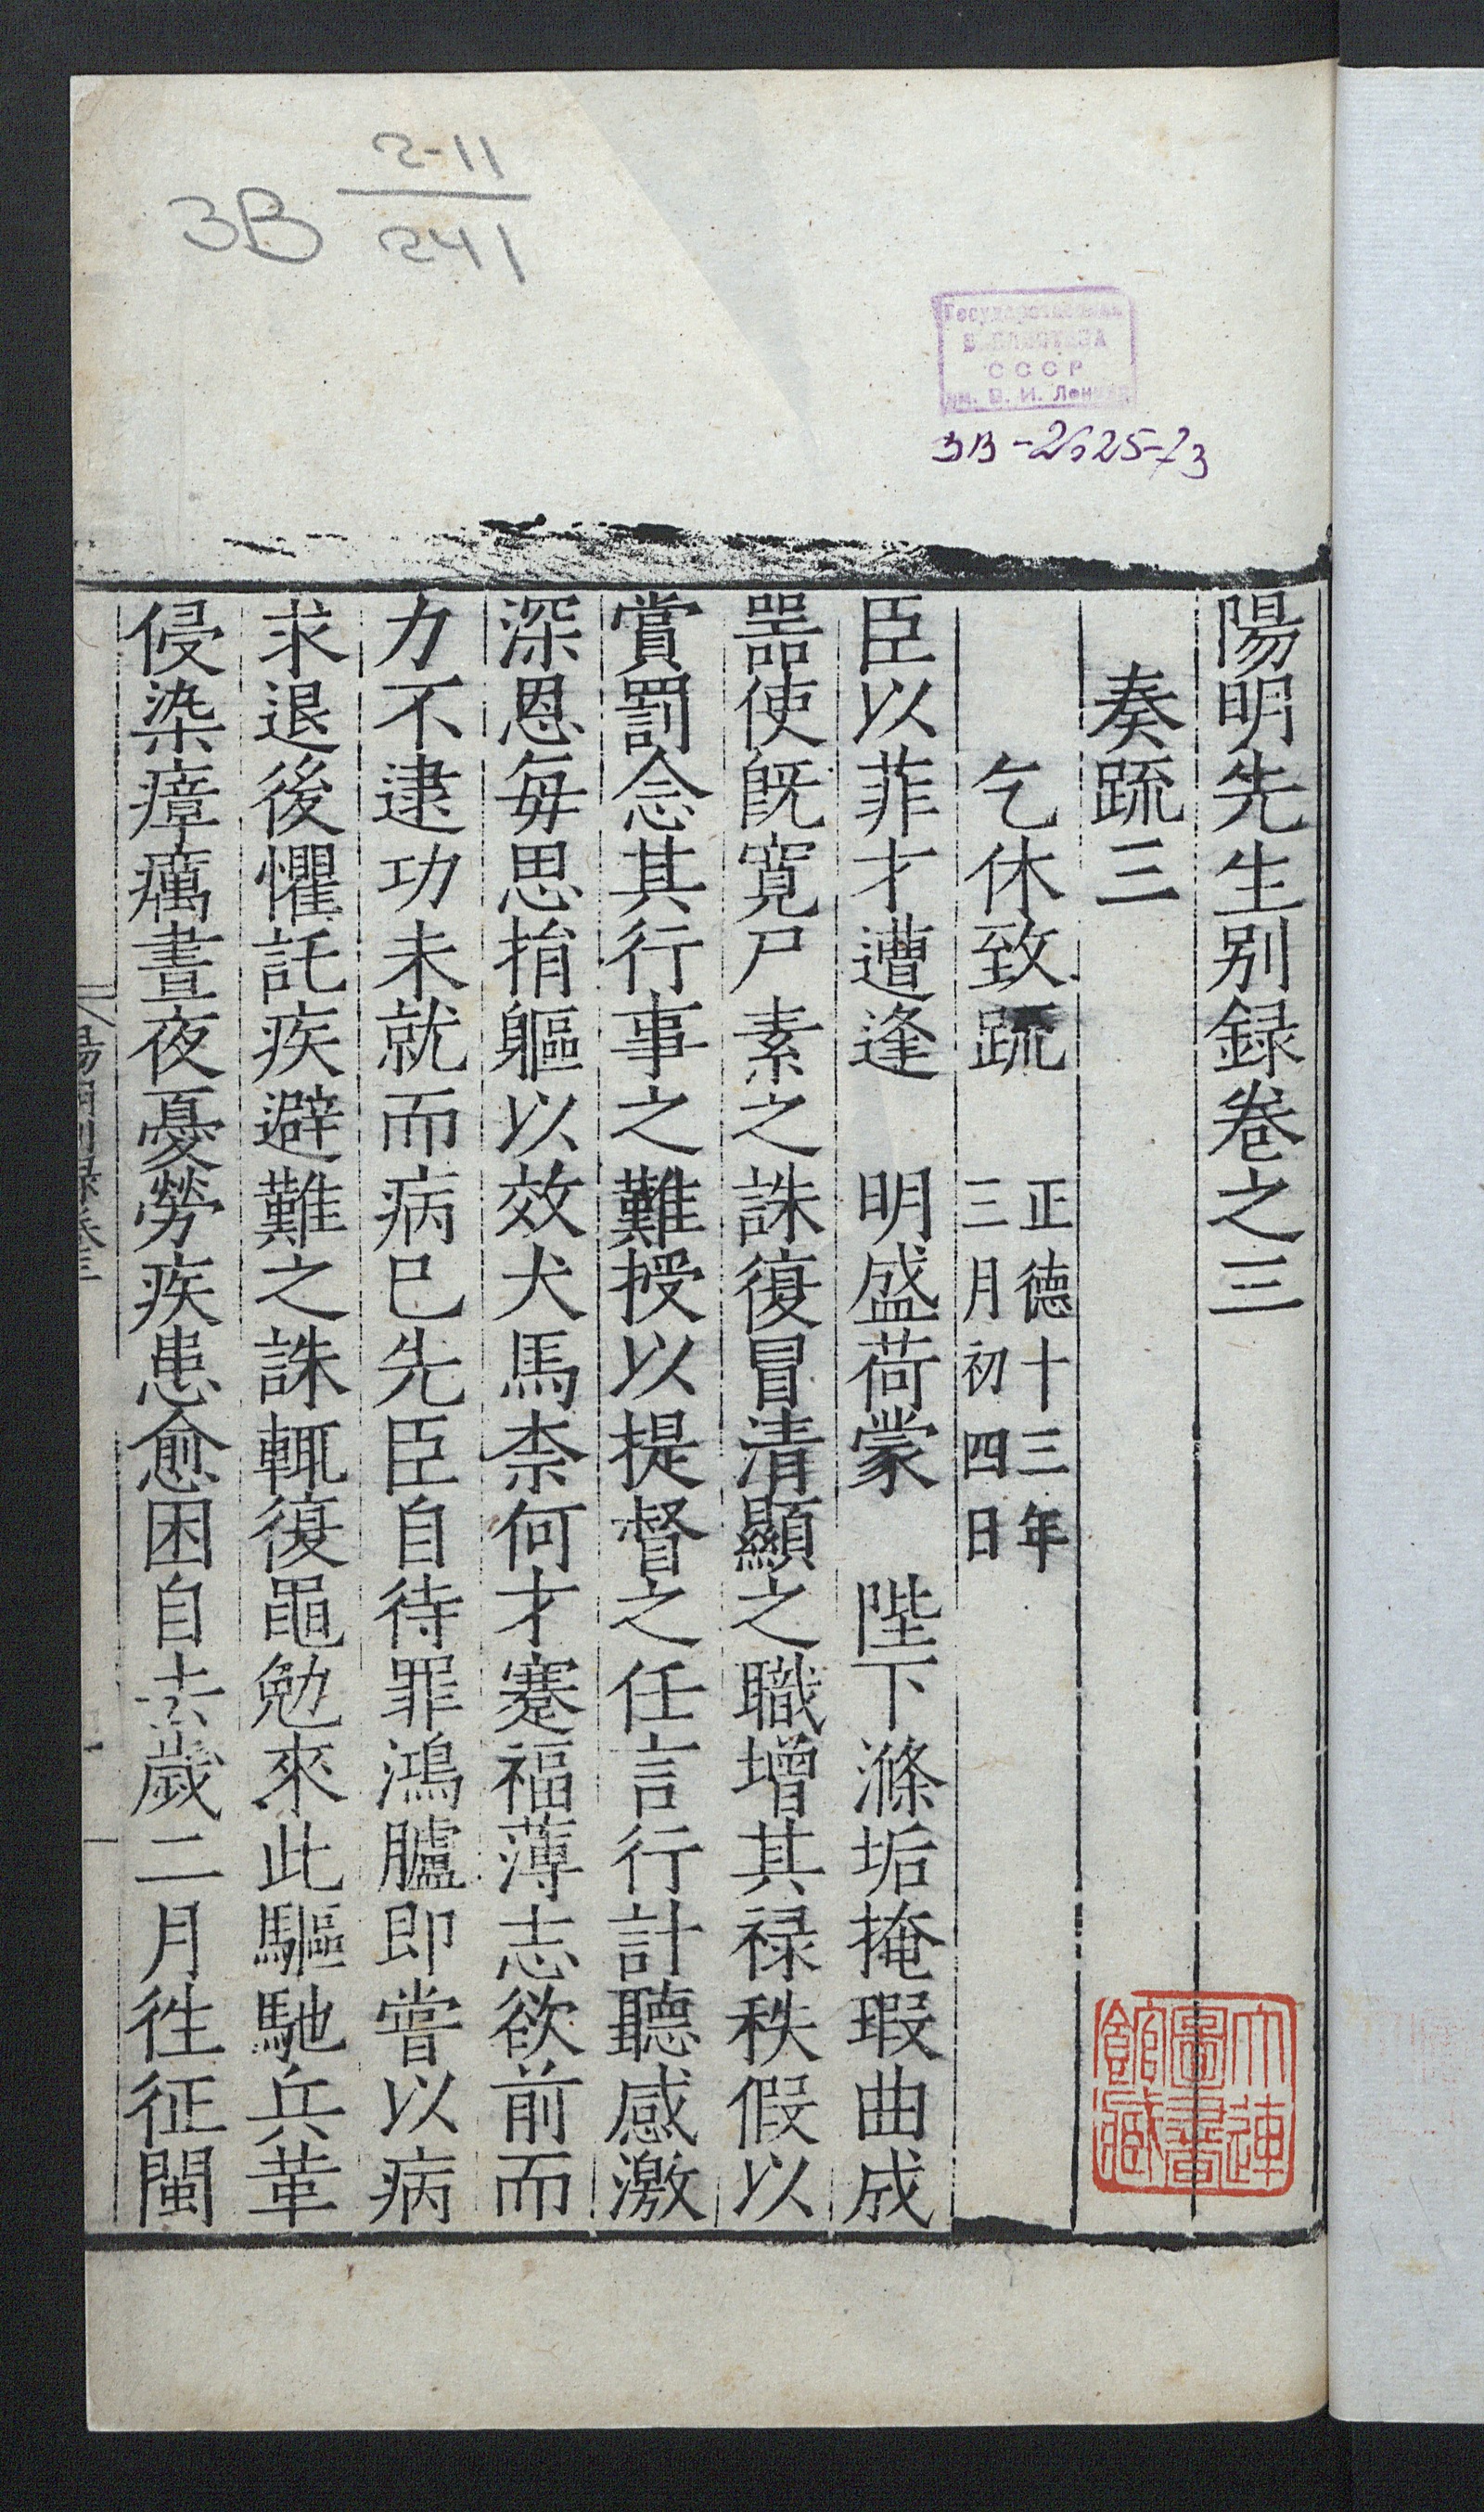 2-11
3B
241
Государственная
БИБЛИОТЕКА
СССР
им. В. И. Ленина
3В-2625-73
陽明先生别録卷之三
奏䟽三
乞休致䟽
正德十三年
三月初四日
臣以菲才遭逢 明盛荷蒙 陛下滌垢掩瑕曲成
噐使旣寛尸素之誅復冒清顯之職增其禄秩假以
賞罰念其行事之難授以提督之任言行計聽感激
深恩每思捐軀以效犬馬柰何才蹇福薄志欲前而
力不逮功未就而病已先臣自待罪鴻臚即嘗以病
求退後懼託疾避難之誅輒復黽勉來此驅馳兵革
侵染瘴癘晝夜憂勞疾患愈困自去歲二月徃征閩
大連
圖書
館藏
陽明别録卷三
一